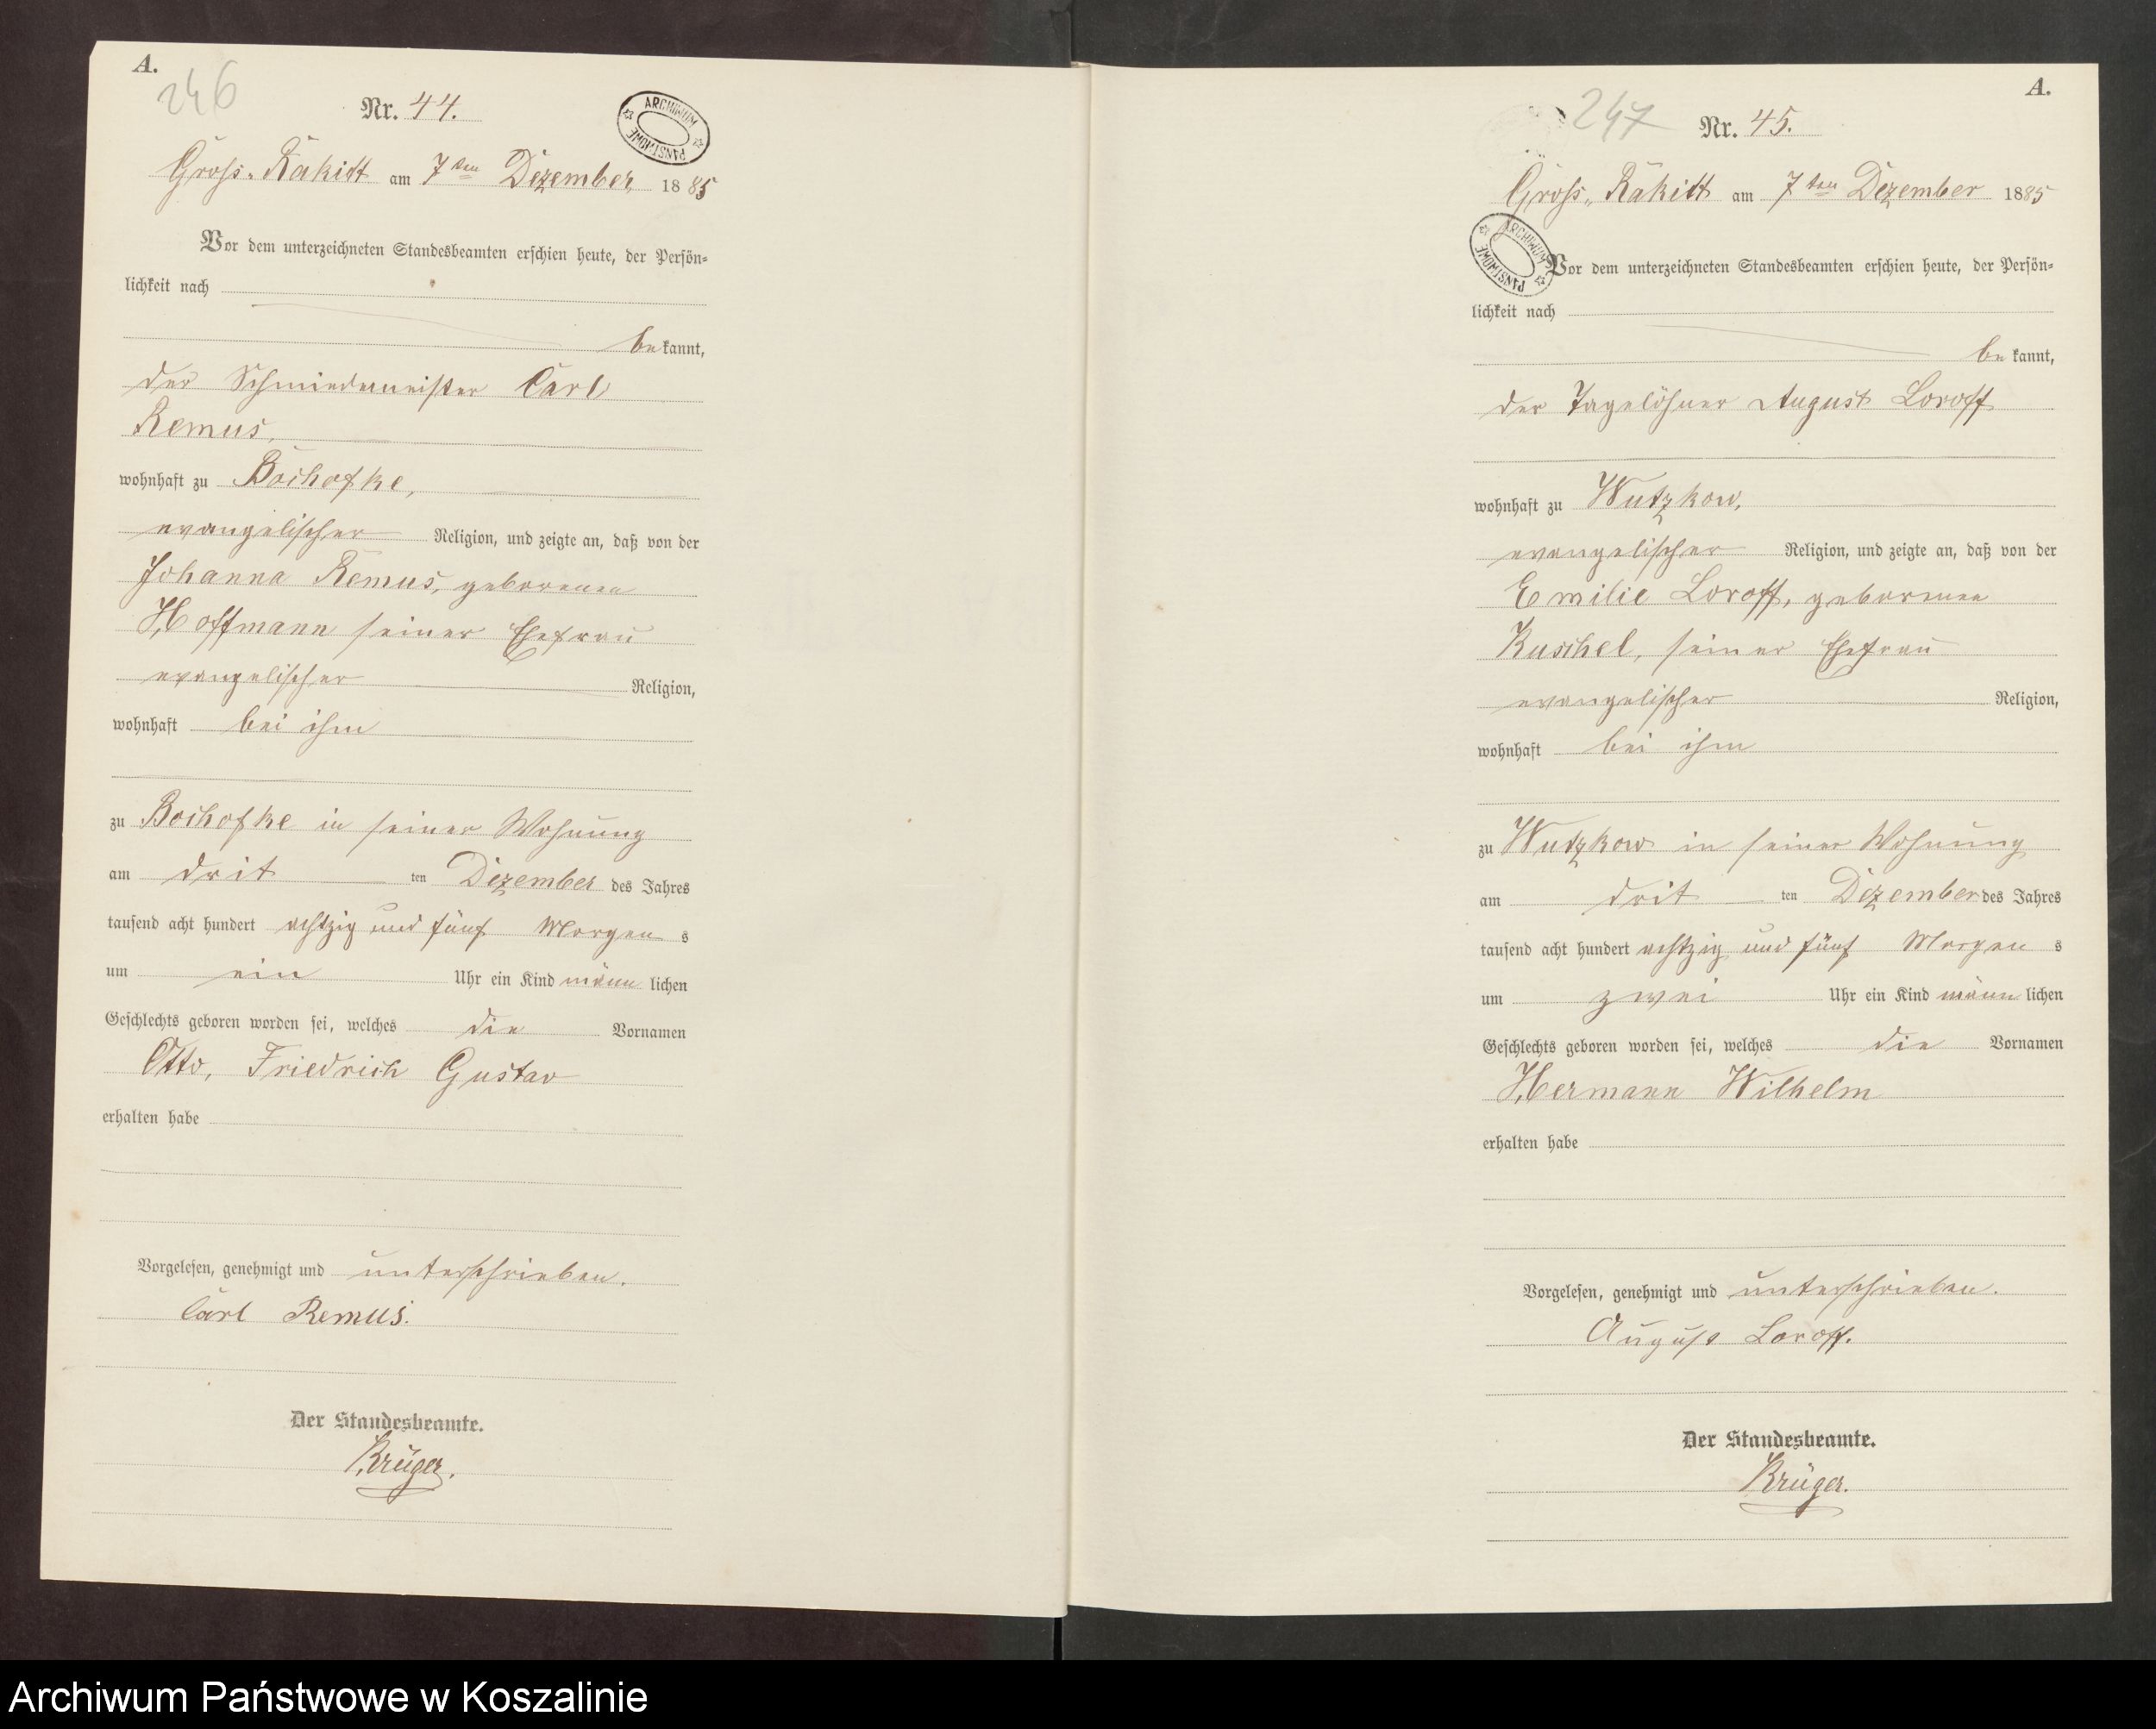 A.
246
Nr. 44.
ARCHIWUM
PAŃSTWOWE
Gross-Rakitt am 7ten Dezember 1885
Vor dem unterzeichneten Standesbeamten erschien heute, der Persön-
lichkeit nach
bekannt,
der Schmiedemeister Carl
Remus,
wohnhaft zu Bochofke,
evangelischer Religion, und zeigte an, daß von der
Johanna Remus, geborenen
Hoffmann seiner Ehefrau
evangelischer Religion,
wohnhaft bei ihm
zu Bochofke in seiner Wohnung
am drit ten Dezember des Jahres
tausend acht hundert achtzig und fünf Morgen s
um ein Uhr ein Kind männ lichen
Geschlechts geboren worden sei, welches die Vornamen
Otto, Friedrich Gustav
erhalten habe
Vorgelesen, genehmigt und unterschrieben.
Carl Remus.
Der Standesbeamte.
Krüger.
A.
247
Nr. 45.
Gross-Rakitt am 7ten Dezember 1885
ARCHIWUM
PAŃSTWOWE
Vor dem unterzeichneten Standesbeamten erschien heute, der Persön-
lichkeit nach
be kannt,
der Tagelöhner August Loroff
wohnhaft zu Wutzkow,
evangelischer Religion, und zeigte an, daß von der
Emilie Loroff, geborenen
Kuschel, seiner Ehefrau
evangelischer Religion,
wohnhaft bei ihm
zu Wutzkow in seiner Wohnung
am drit ten Dezember des Jahres
tausend acht hundert achtzig und fünf Morgen s
um zwei Uhr ein Kind männ lichen
Geschlechts geboren worden sei, welches die Vornamen
Hermann Wilhelm
erhalten habe
Vorgelesen, genehmigt und unterschrieben.
August Loroff.
Der Standesbeamte.
Krüger.
Archiwum Państwowe w Koszalinie